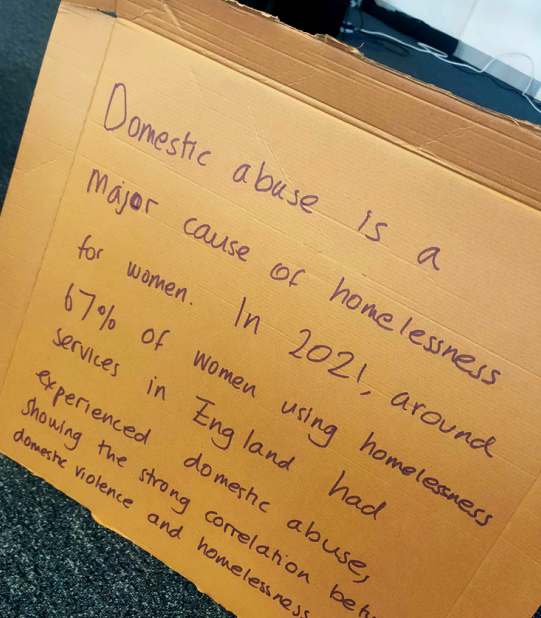 Domestic abuse is a
major cause of homelessness
for women. In 2021, around
67% of women using homelessness
services in England had
experienced domestic abuse,
showing the strong correlation
domestic violence and homelessness